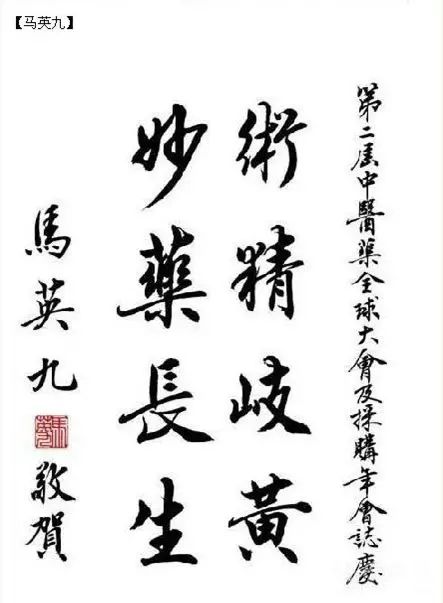 【马英九】
第二届中醫藥全球大會及採購年會誌慶
術精岐黃
妙藥長生
馬英九
馬英九
敬賀